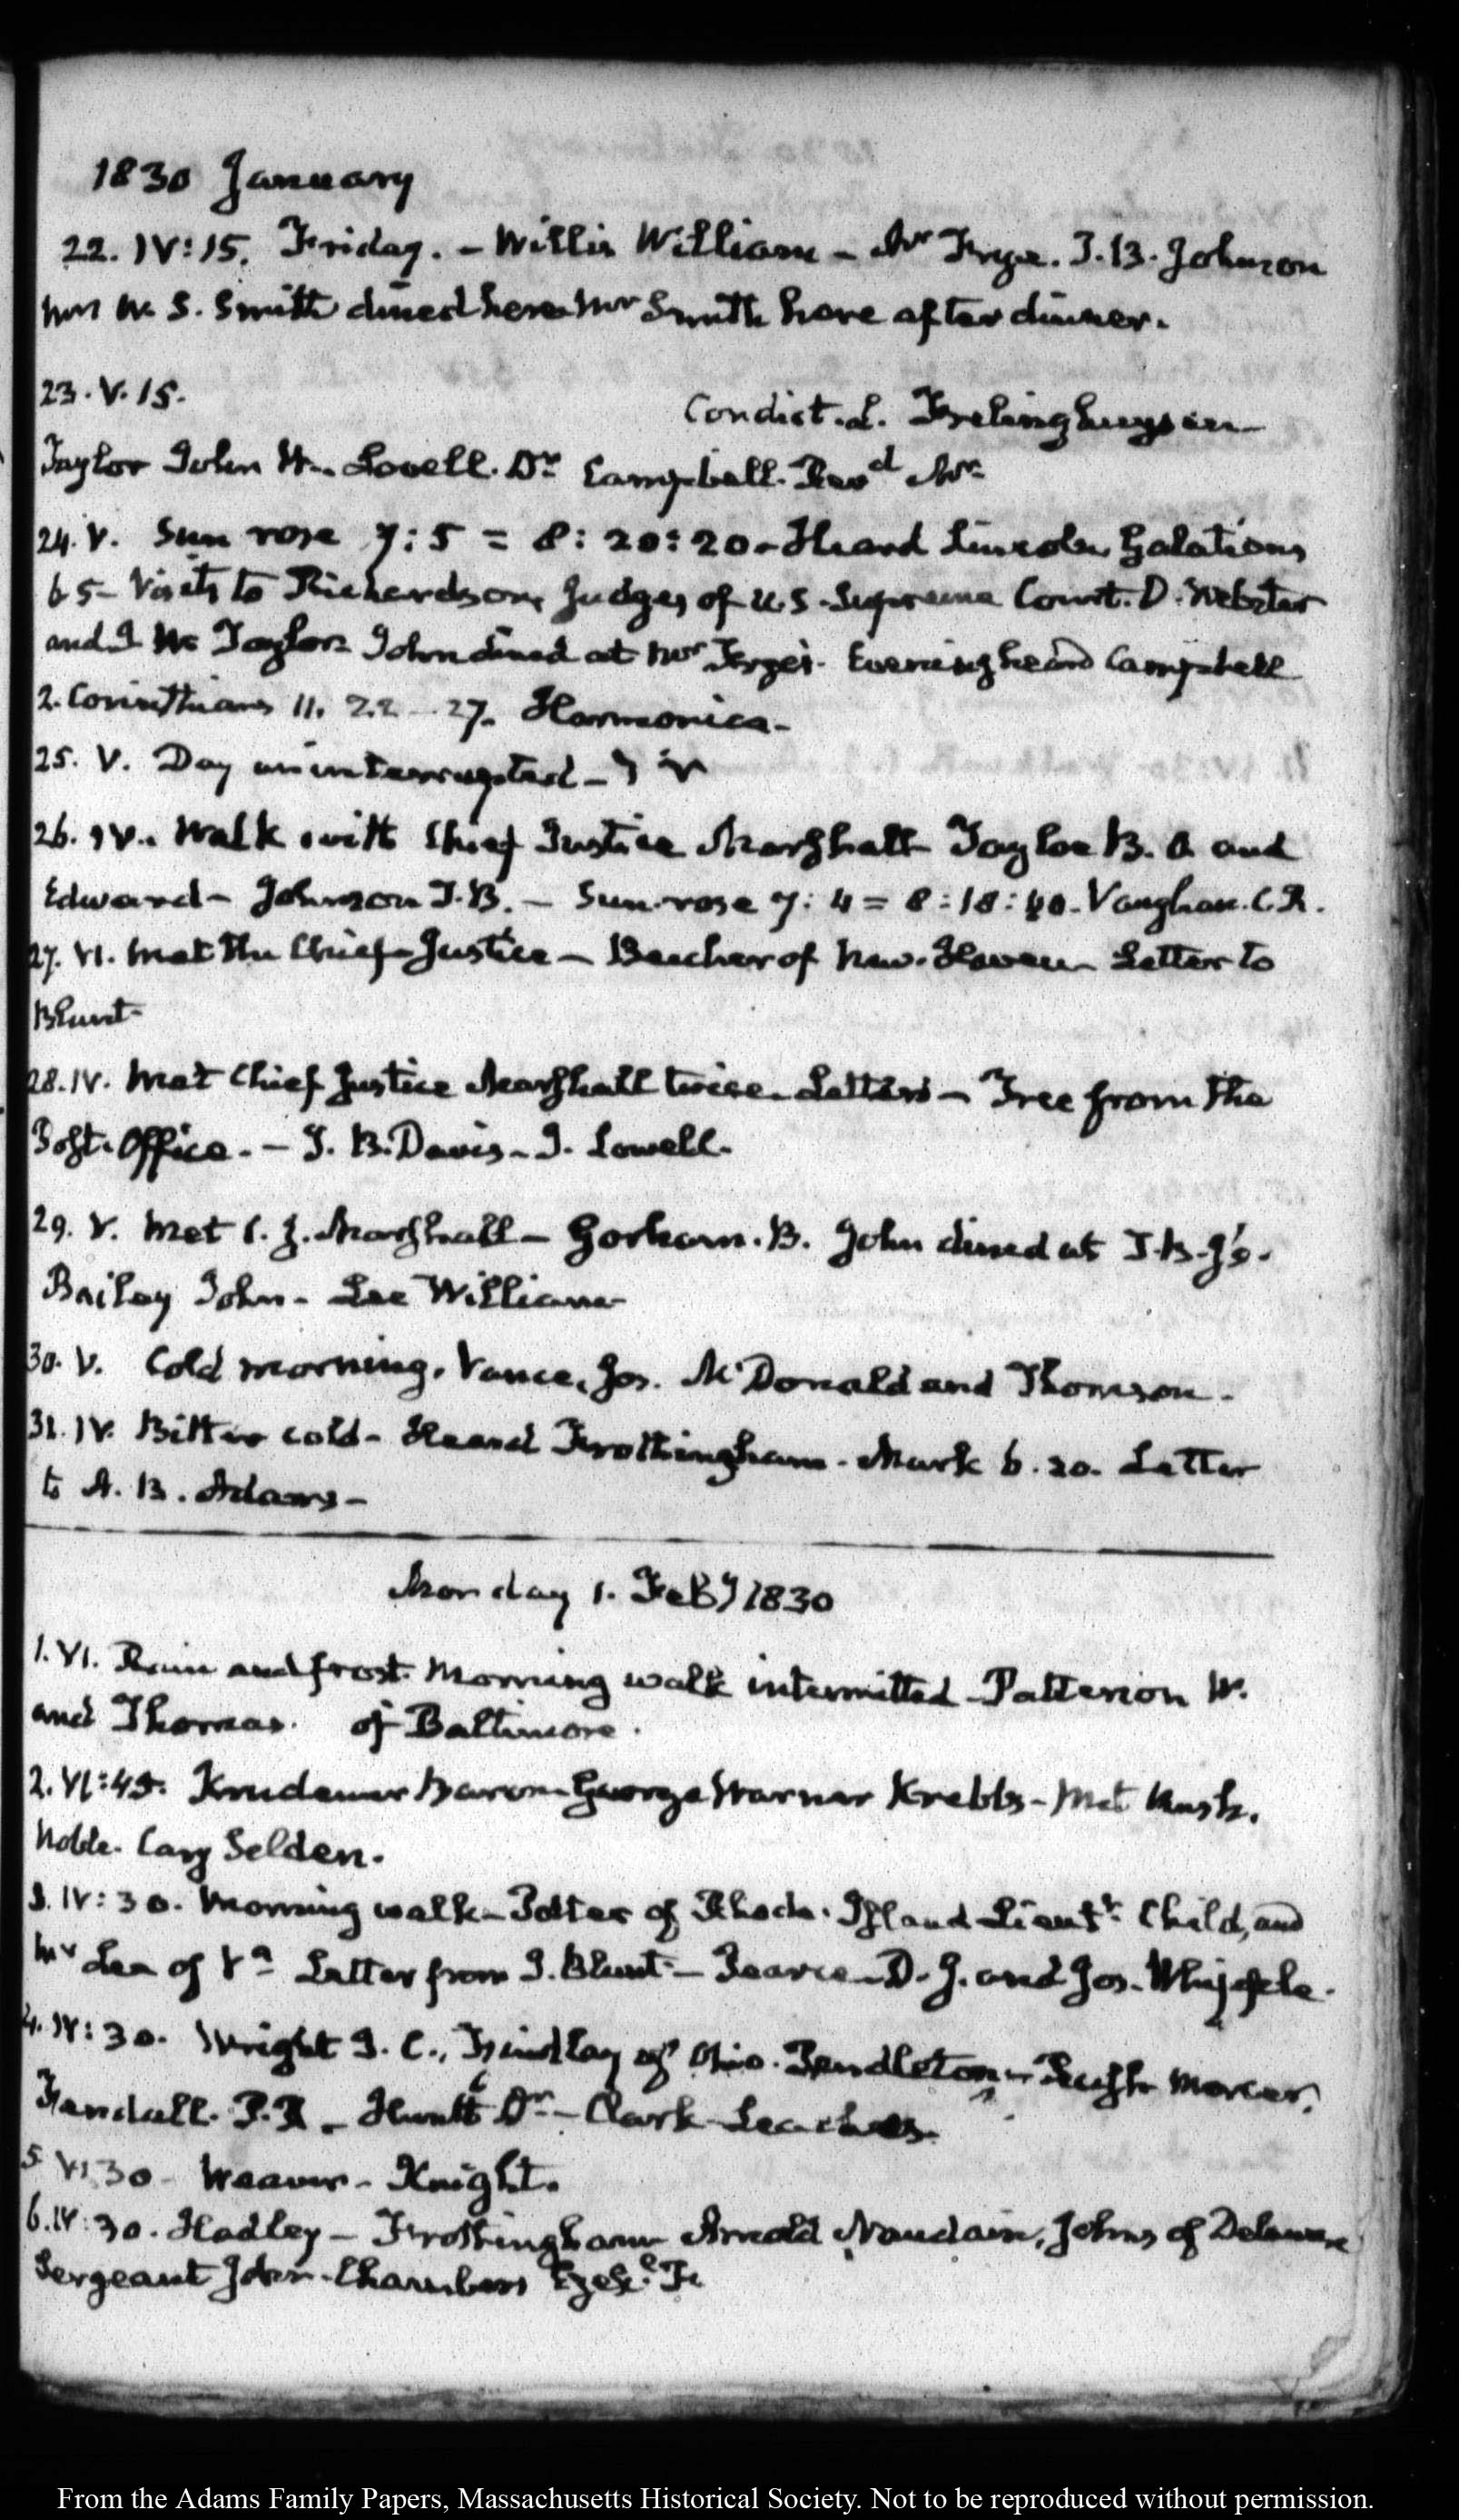 1830 January
22. IV:15. Friday. – Willis William – Mr Frye. T. B. Johnson
Mrs W. S. Smith dined here Mr Smith here after dinner.
23. V. 15. Condict. L. Frelinghuysen
Taylor John W. Lovell. Dr. Campbell. Revd Mr
24. V. Sun rose 7:5 = 8:20:20 – Heard Lincoln Galatians
6 5 – Visits to Richardson, Judges of U.S. Supreme Court. D. Webster
and J W Taylor John dined at Mrs Frye's. Evening heard Campbell
2. Corinthians 11. 22 – 27. Harmonica –
25. V. Day uninterrupted –
26. IV. Walk with Chief Justice Marshall Tayloe B. O. and
Edward – Johnson T. B. – Sun rose 7:4 = 8:18:40. Vaughan. C. R.
27. VI. Met the Chief Justice – Beecher of New-Haven – Letter to
Blunt
28. IV. Met Chief Justice Marshall twice. Letters – Free from the
Post-Office. – J. B. Davis – J. Lowell.
29. V. Met C. J. Marshall – Gorham. B. John dined at T. B. J's.
Bailey John – Lee William
30. V. Cold morning. Vance, Jos. McDonald and Thomson.
31. IV. Bitter cold – Heard Frothingham – Mark 6. 20. Letter
to A. B. Adams –
Monday 1. Feby 1830
1. VI. Rain and frost. Morning walk intermitted – Patterson W.
and Thomas. of Baltimore.
2. VI:45. Krudener Baron George Warner Krebbs – Met Rush.
Noble. Cary Selden.
3. IV:30. Morning walk – Potter of Rhode-Island Lieutt. Child, and
Mr Lea of Va Letter from J. Blunt – Pearce – D. J. and Jos. Whipple.
4. IV:30. Wright J. C., Findlay of Ohio. Pendleton – Rush Mercer,
Randall. Huntt Dr – Clark
5 VI 30 – Weaver – Knight.
6. IV:30. Hadley – Frothingham Arnold Naudain, Johns of Delaware
Sergeant John – Chambers Ezekl.
From the Adams Family Papers, Massachusetts Historical Society. Not to be reproduced without permission.